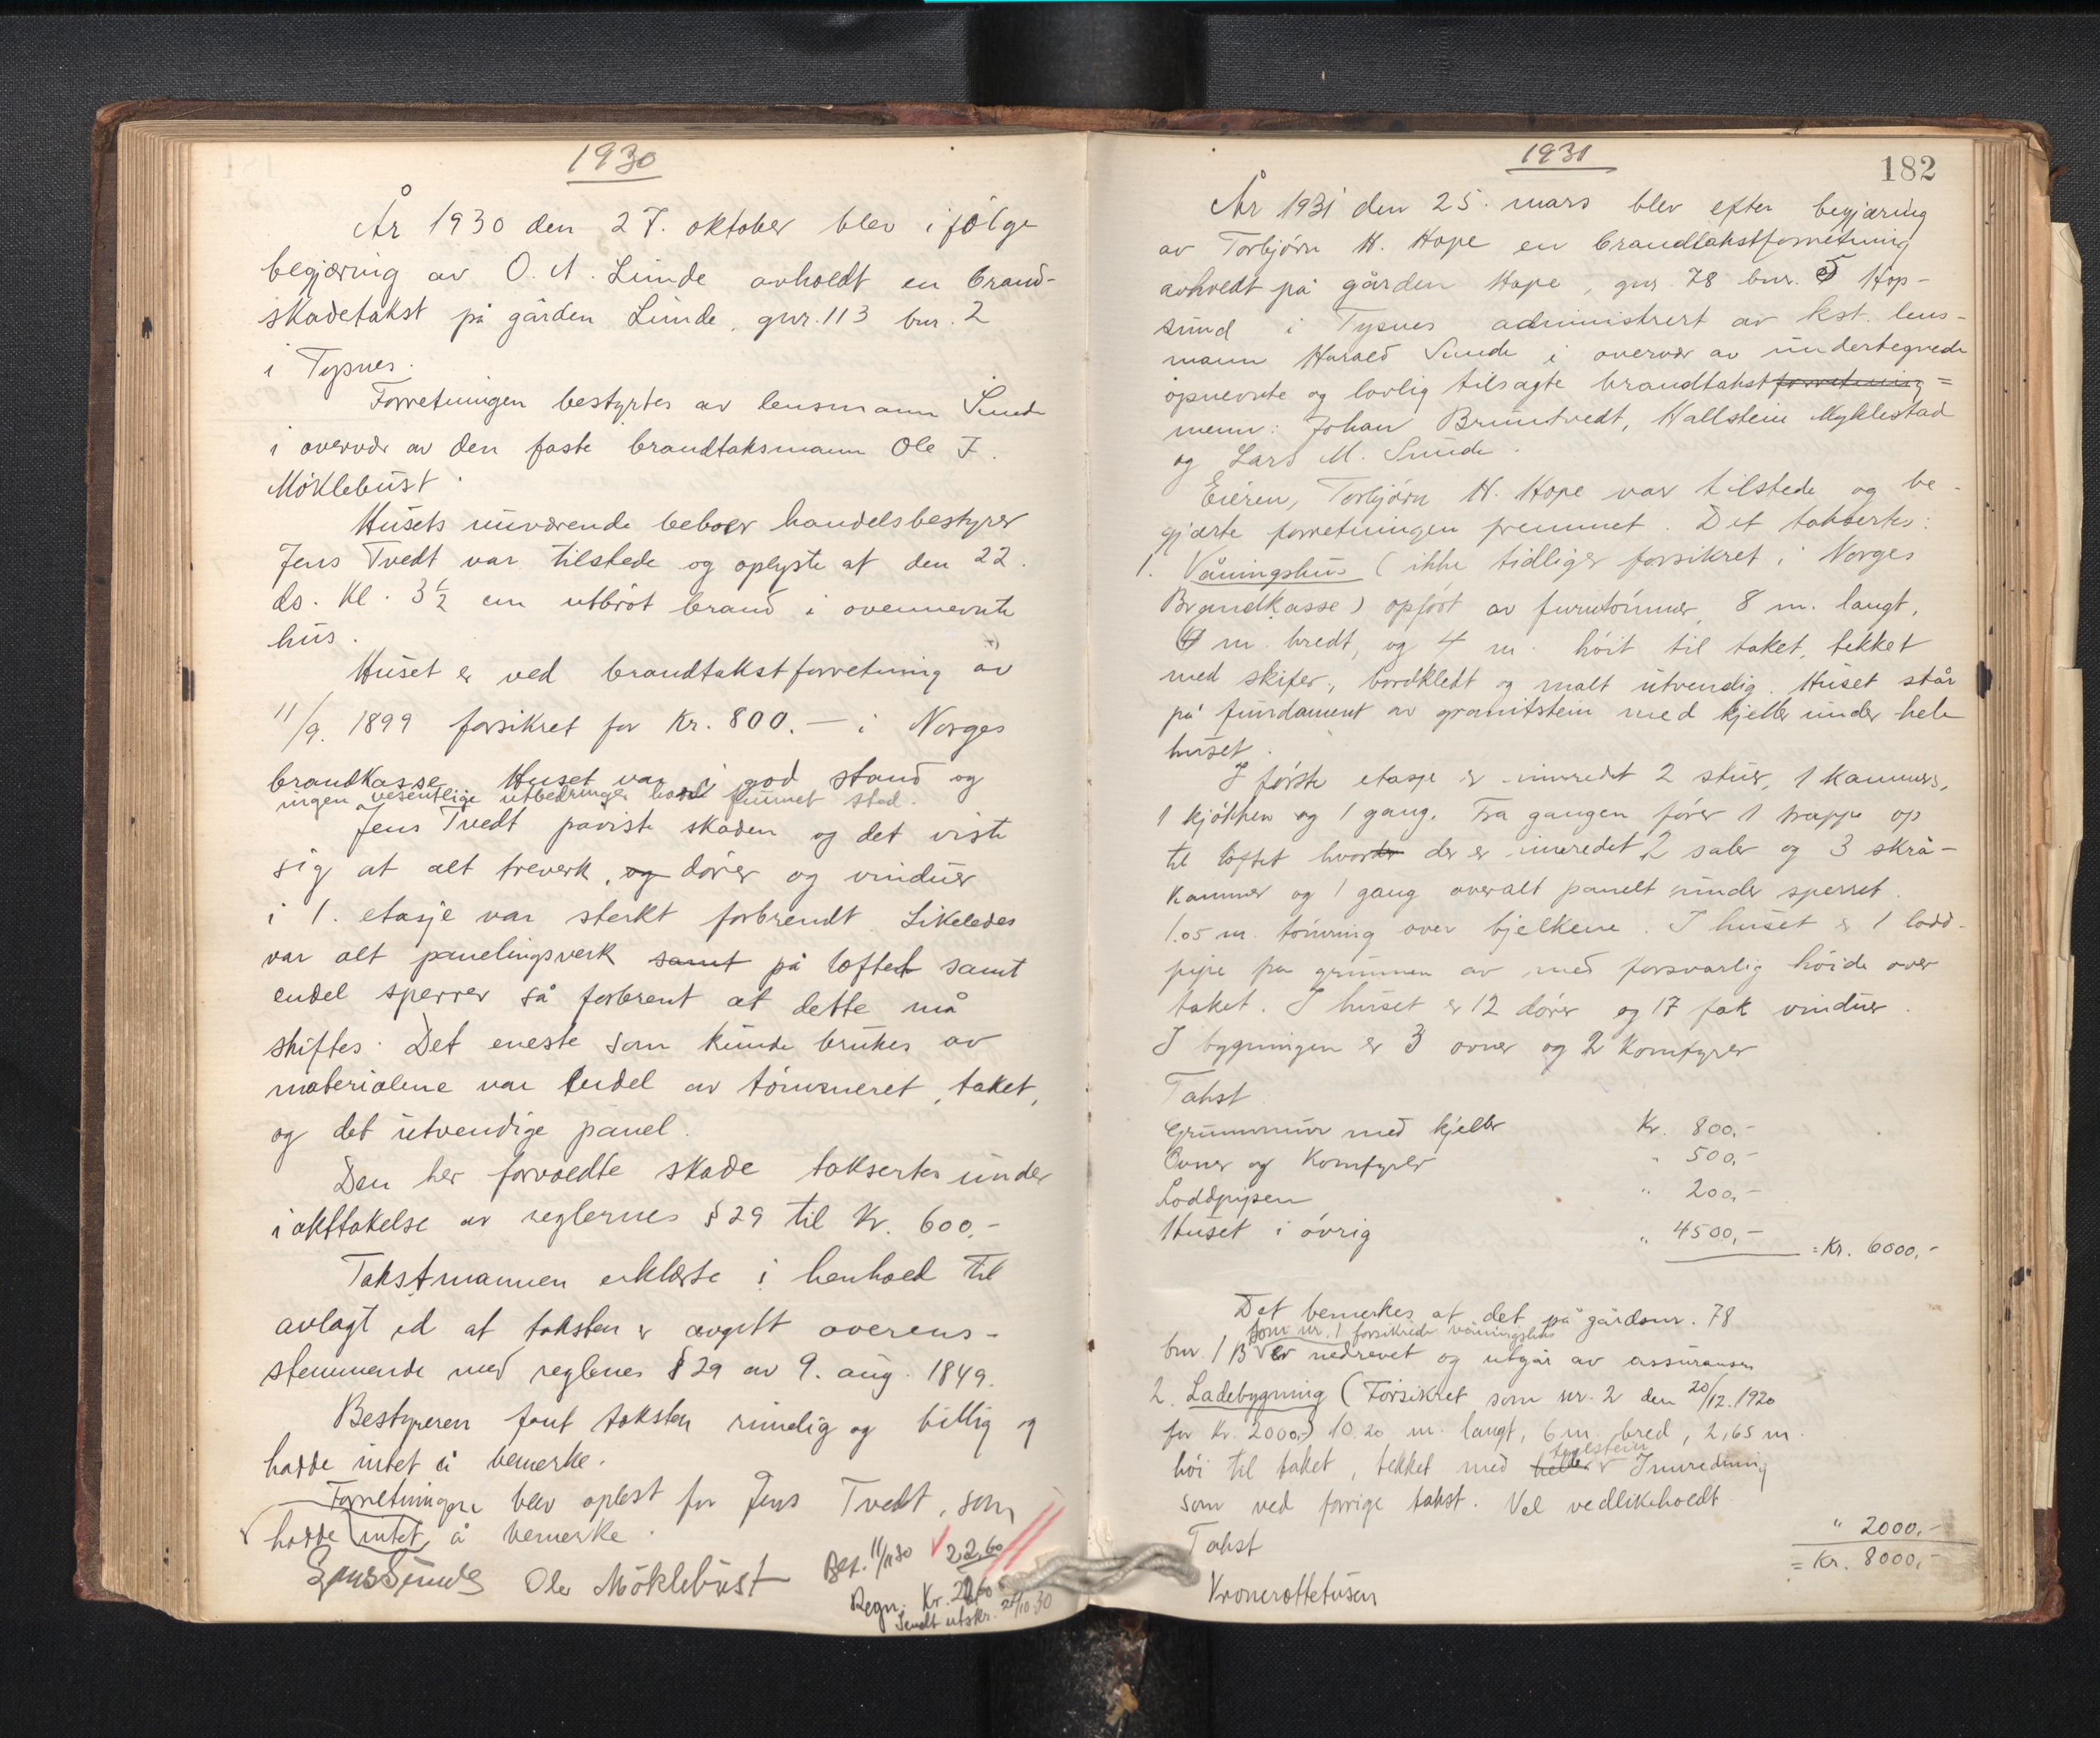 1930
År 1930 den 27. oktober blev ifölge
begjæring av O. A. Lunde avholdt en brand-
skadetakst på gården Lunde, gnr. 113 bnr. 2
i Tysnes.
Forretningen bestyrtes av lensmann Sunde
i overvær av den faste brandtaksmann Ole J.
Möklebust.
Husets nuværende beboer handelsbestyrer
Jens Tvedt var tilstede og oplyste at den 22.
ds. kl. 3 1/2 em utbröt brand i ovennevnte
hus.
Huset er ved brandtakstforretning av
11/9. 1899 forsikret for Kr. 800.— i Norges
brandkasse. Huset var i god stand og
ingen vesentlige utbedringer hadde funnet sted.
Jens Tvedt paviste skaden og det viste
sig at alt treverk, og dörer og vinduer
i 1. etasje var sterkt forbrendt. Likeledes
var alt panelingsverk samt på loftet samt
endel sperrer så forbrent at dette må
skiftes. Det eneste som kunde brukes av
materialene var endel av tömmeret, taket,
og det utvendige panel.
Den her forvoldte skade taksertes under
iakttakelse av reglernes § 29 til Kr. 600,-
Takstmannen erklærte i henhold til
avlagt ed at taksten er avgitt overens-
stemmende med reglenes § 29 av 9. aug. 1849.
Bestyreren fant taksten rimelig og billig og
hadde intet å bemerke.
Forretningen blev oplest for Jens Tvedt, som
hadde intet å bemerke.
Ole Möklebust
Bet. 11/11 30 22,60
Regn. Kr. 22,60
Sendt utskr. 28/10-30
1931
182
År 1931 den 25. mars blev efter begjæring
av Torbjörn H. Hope en brandtakstforretning
avholdt på gården Hope, gnr. 78 bnr. 5 Hop-
sund i Tysnes administrert av kst. lens-
mann Harald Sunde i overvær av undertegnede
opnevnte og lovlig tilsagte brandtakstforretning=
menn: Johan Bruntvedt, Hallstein Myklestad
og Lars M. Sunde.
Eieren, Torbjörn H. Hope var tilstede og be-
gjærte forretningen fremmet. Det taksertes:
1. Våningshus (ikke tidliger forsikret i Norges
Brandkasse) opfört av furutömmer, 8 m. langt,
m. bredt, og 4 m. höit til taket, tekket
med skifer, bordkledt og malt utvendig. Huset står
på fundament av granitstein med kjeller under hele
huset.
I förste etasje er innredet 2 stuer, 1 kammers,
1 kjökken og 1 gang. Fra gangen förer 1 trappe op
til loftet hvorder der er innredet 2 saler og 3 skrå-
kammer og 1 gang overalt panelt under sperret.
1.05 m. tömring over bjelkene. I huset er 1 lodd-
pipe fra grunnen av med forsvarlig höide over
taket. I huset er 12 dörer og 17 fak vinduer.
I bygningen er 3 ovner og 2 komfyrer
Takst
Grunnmur med kjeller Kr. 800.-
Ovner og komfyrer " 500,-
Loddpipen " 200,-
Huset i övrig " 4500,- = Kr. 6000,-
Det bemerkes at det på gårdsnr. 78
som nr. 1 forsikrede våningshus
bnr. 1 B er nedrevet og utgår av assuransen
2. Ladebygning (Forsikret som nr. 2 den 20/12. 1920
for Kr. 2000,-) 10.20 m. langt, 6 m. bred, 2,65 m.
höi til taket, tekket med heller teglstein. Innredning
som ved forrige takst. Vel vedlikeholdt
Takst " 2000,-
= Kr. 8000,-
Kroneråttetusen